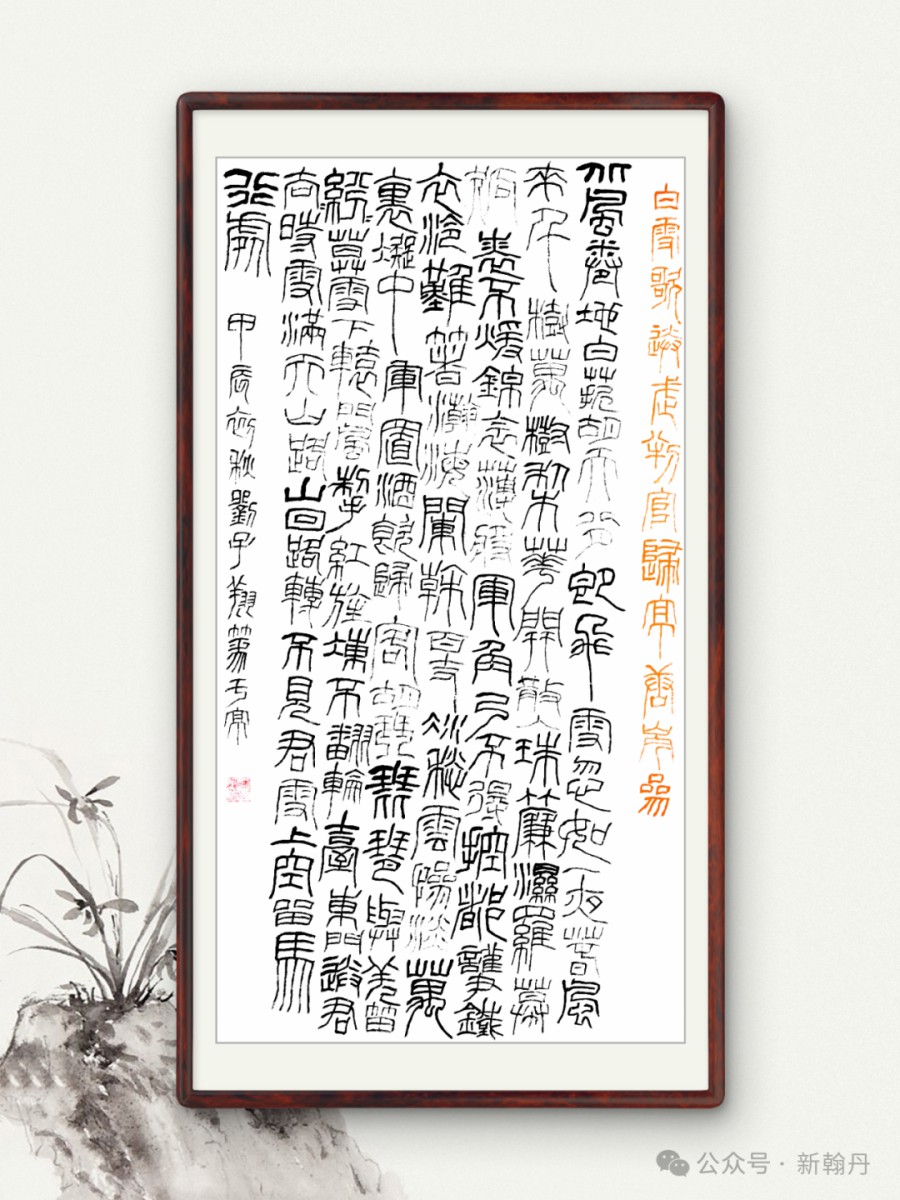 白雪歌送武判官歸京唐岑參
北風捲地白草折胡天八月即飛雪忽如一夜春風
來千樹萬樹梨花開散入珠簾濕羅幕
狐裘不煖錦衾薄將軍角弓不得控都護鐵
衣冷難著瀚海闌榦百丈冰愁雲慘淡萬
裏凝中軍置酒飲歸客胡琴琵琶與羌笛
紛紛暮雪下轅門風掣紅旗凍不翻輪臺東門送君
去時雪滿天山路山回路轉不見君雪上空留馬
行處
甲辰初秋劉子翔篆于京
公众号·新翰丹